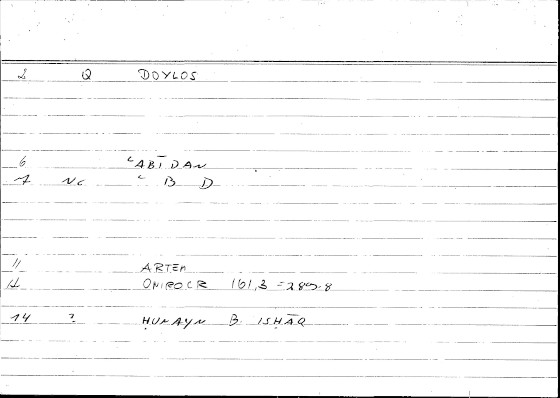 2 Q DOYLOS
6 ʿABĪDAN
7 NC ʿ B D
11 ARTEM
12 ONIROCR 161,3 =289.8
14 ? ḤUNAYN B. ISḤĀQ